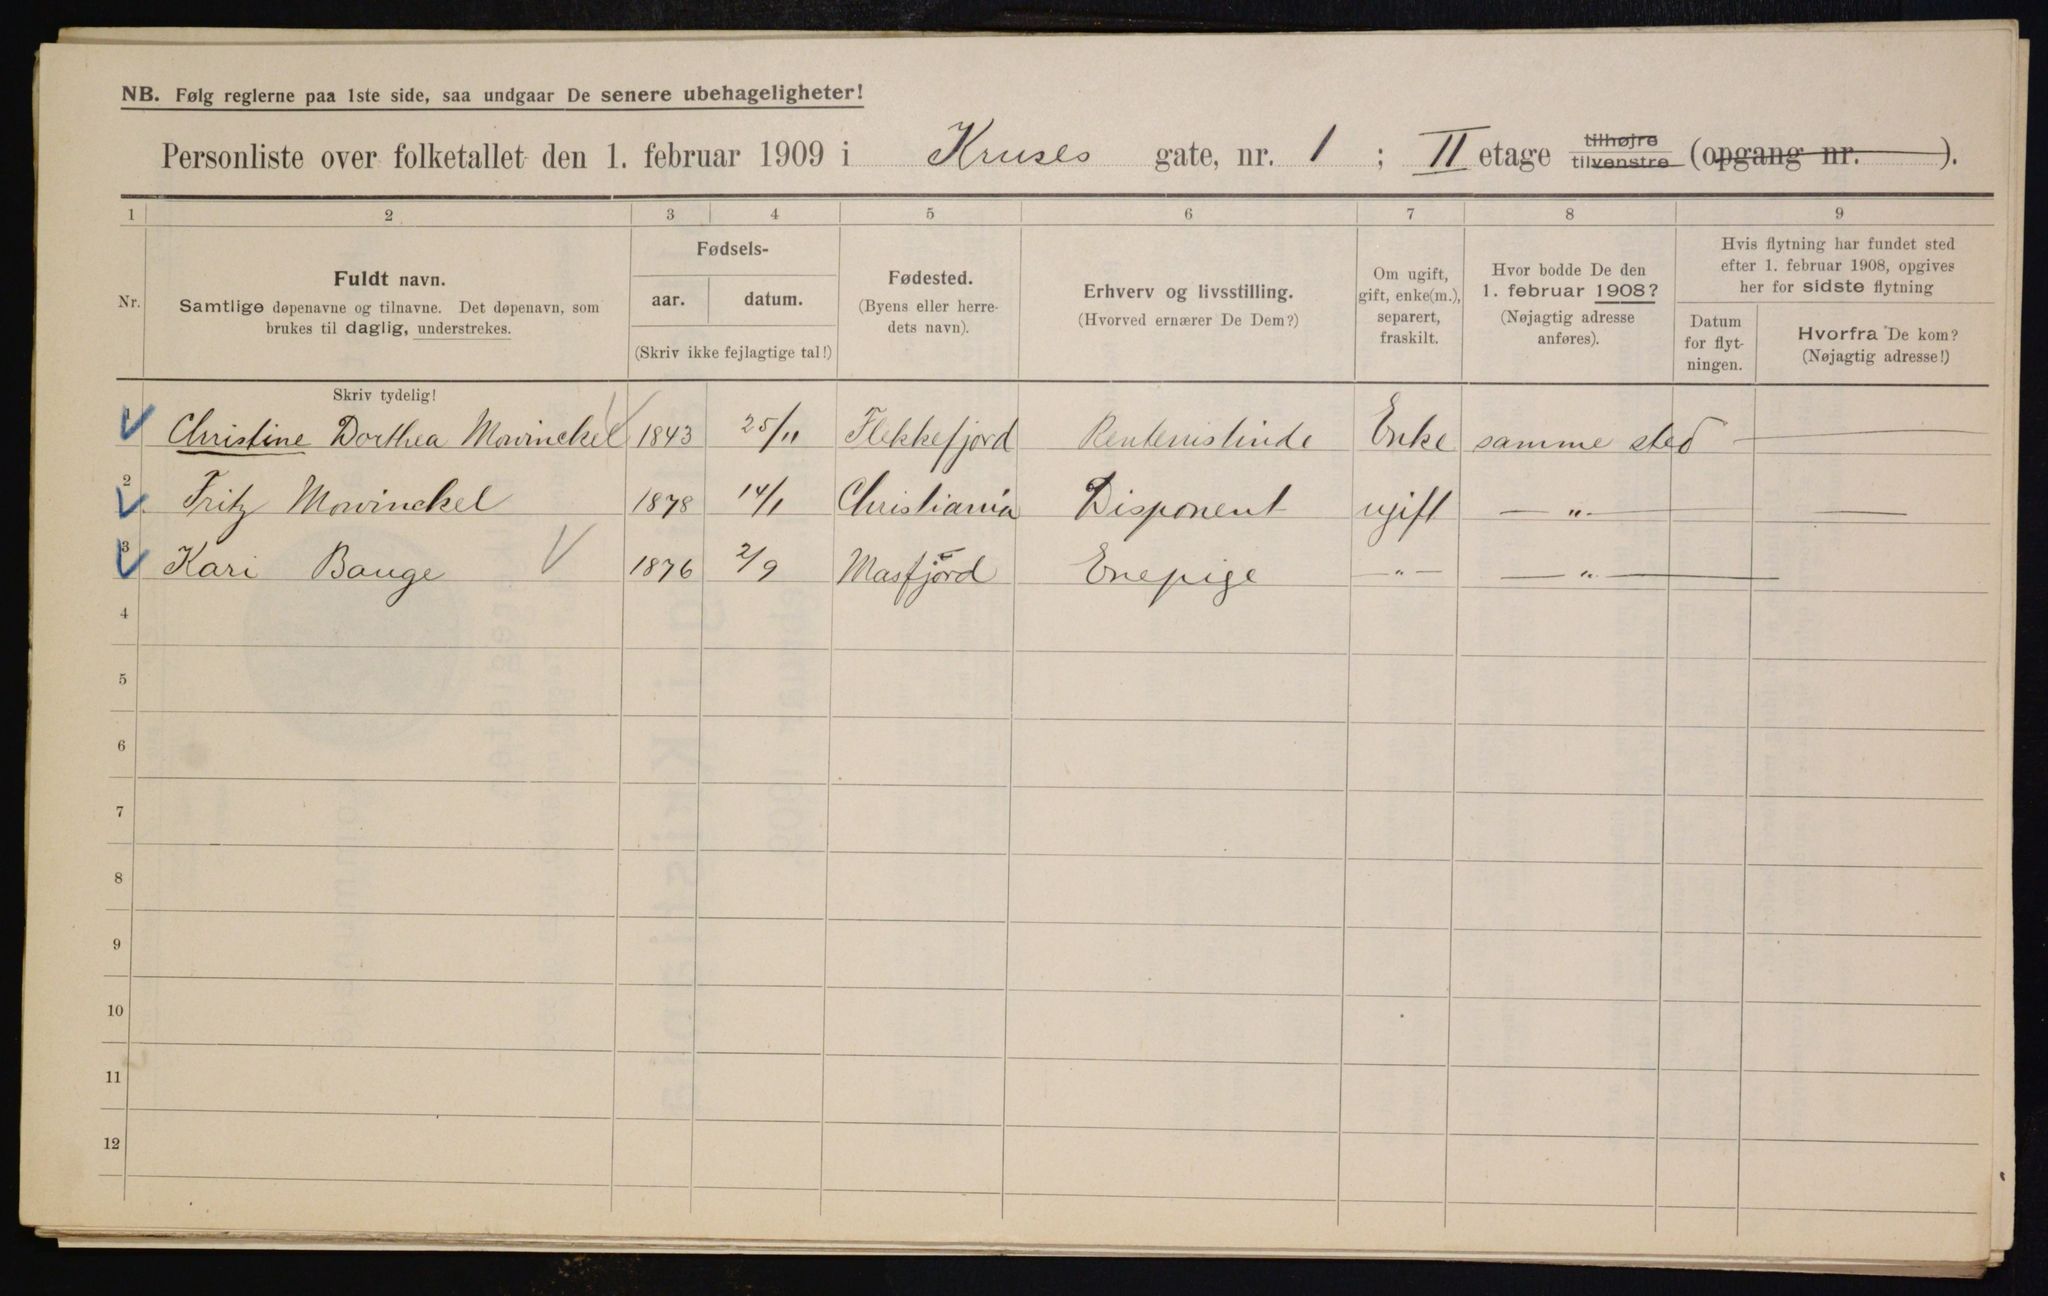 NB. Følg reglerne paa 1ste side, saa undgaar De senere ubehageligheter!
Personliste over folketallet den 1. februar 1909 i Kruses gate, nr. 1 ; II etage tilhøjre tilvenstre (opgang nr. ).
1 2 3 4 5 6 7 8 9
Nr.
Fuldt navn.
Samtlige døpenavne og tilnavne. Det døpenavn, som
brukes til daglig, understrekes.
Fødsels-
aar. datum.
(Skriv ikke fejlagtige tal!)
Fødested.
(Byens eller herre-
dets navn).
Erhverv og livsstilling.
(Hvorved ernærer De Dem?)
Om ugift,
gift, enke(m.),
separert,
fraskilt.
Hvor bodde De den
1. februar 1908?
(Nøjagtig adresse
anføres).
Hvis flytning har fundet sted
efter 1. februar 1908, opgives
her for sidste flytning
Datum
for flyt-
ningen.
Hvorfra De kom?
(Nøjagtig adresse!)
Skriv tydelig!
1 Christine Dorthea Mowinckel 1843 25/11 Flekkefjord Rentenistinde Enke samme sted —
2 Fritz Mowinckel 1878 14/1 Christiania Disponent ugift — " — —
3 Kari Bauge 1876 2/9 Masfjord Enepige — " — — " —
4
5
6
7
8
9
10
11
12